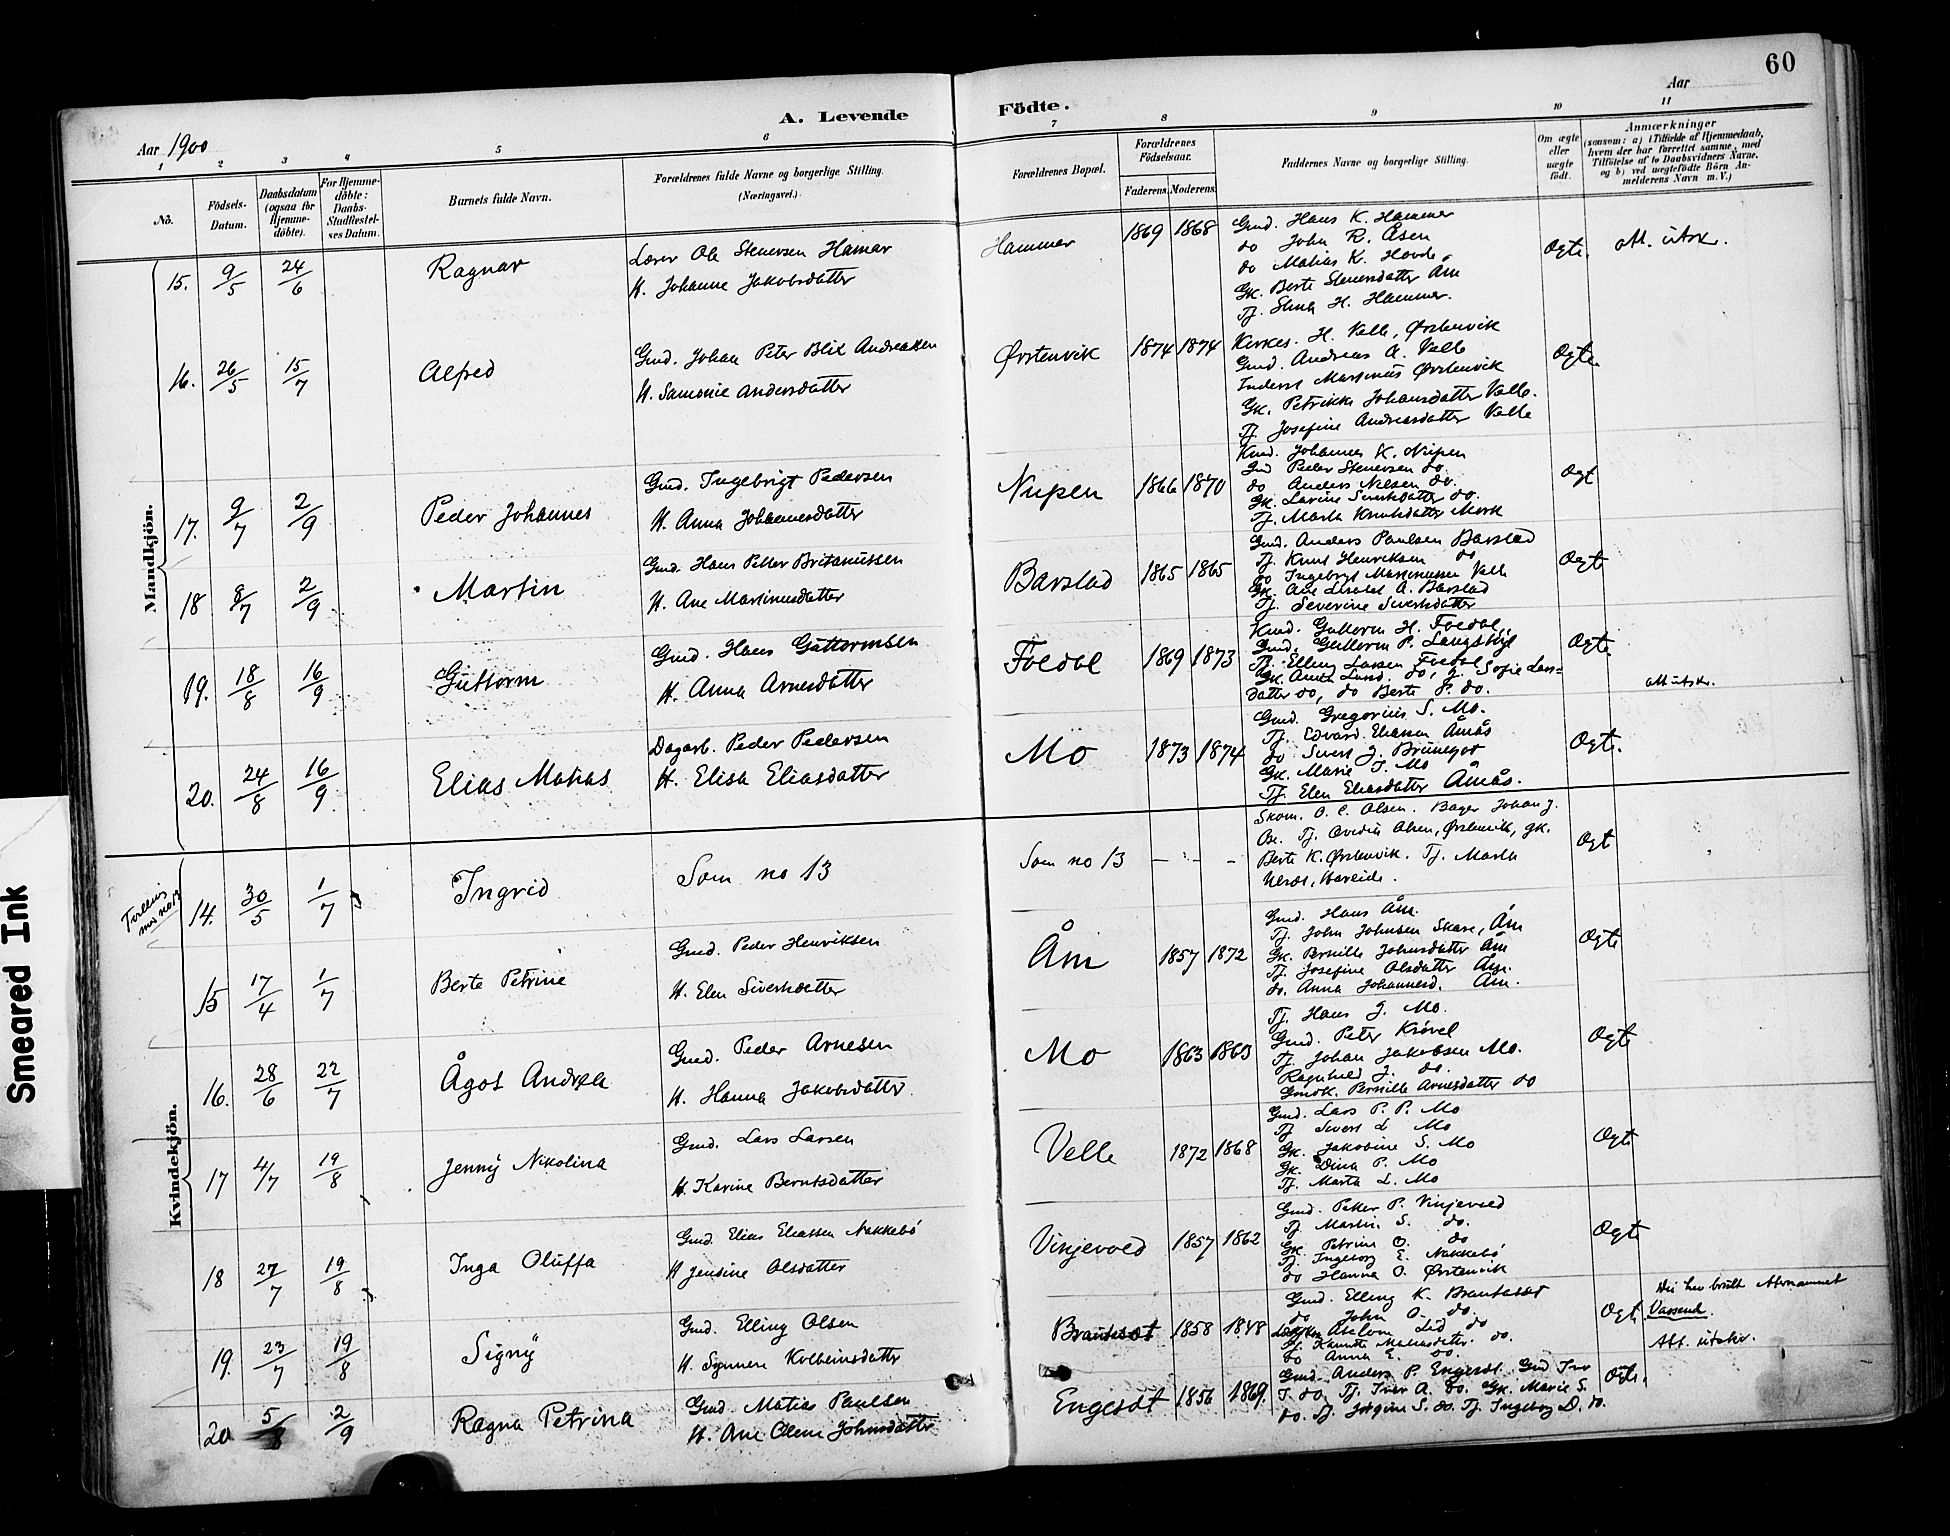 60
A. Levende
Födte.
Aar 1900
Aar
1 2 3 4 5 6 7 8 9 10 11
No.
Födsels-Datum.
Daabsdatum (ogsaa for Hjemme-döbte).
For Hjemme-döbte: Daabs-Stadfæstel-ses Datum.
Barnets fulde Navn.
Forældrenes fulde Navne og borgerlige Stilling.
(Næringsvei.)
Forældrenes Bopæl.
Forældrenes Födselsaar.
Faderens. Moderens.
Faddernes Navne og borgerlige Stilling.
Om ægte eller uægte født.
Anmærkninger
(saasom: a) i Tilfælde af Hjemmedaab,
hvem der har forrettet samme, med
Tilföielse af to Daabsvidners Navne,
og b) ved uægtefödte Börn An-
melderens Navn m. V.)
Mandkjön.
15. 9/5 24/6 Ragnar
Lærer Ole Stenersen Hamar
H. Johanne Jakobsdatter
Hammer 1869 1868
Gmd. Hans K. Hammer
do John R. Åsen
do Matias K. Hovde
Gk. Berte Stenersdatter Åm
Tj. H. Hammer.
Ægte.
att. utskr.
16. 26/5 15/7 Alfred
Gmd. Johan Peter Blix Andreassen
H. Samonie Andersdatter
Ørstenvik 1874 1874
Kirkes. H. Velle, Ørstenvik
Gmd. Andreas A. Velle
Inderst Martinus Ørstenvik
Gk. Petrikke Johansdatter Velle.
Tj Josefine Andreasdatter Velle
Ægte
17. 9/7 2/9 Peder Johannes
Gmd. Ingebrigt Pedersen
H. Anna Johannesdatter
Nupen 1866 1870
Kmd. Johannes K. Nupen
Gmd Peder Stenersen do.
do Anders Nelsen do.
Gk. Larine Sivertsdatter do.
Tj. Marta Knutsdatter Mork
Ægt
18 8/7 2/9 Martin
Gmd. Hans Petter Britanussen
H. Ane Martinusdatter
Barstad 1865 1865
Gmd. Anders Paulsen Barstad
Tj. Knut Henriksen do
do Ingebrigt Martinussen Velle
Gk. Ane A. Barstad
Tj. Severine Sivertsdatter
Ægte
19. 18/8 16/9 Guttorm
Gmd. Hans Guttormsen
H. Anna Arnesdatter
Foldal 1869 1873
Kmd. Guttorm H. Foldal,
Gmd. Guttorm P.
Tj. Elling Larsen Foldal
Gk. Anna do, Sofie Lars=
datter do, do Berte P. do.
Ægte.
att utskr.
20. 24/8 16/9 Elias Matias
Dagarb. Peder Pedersen
H. Elisa Eliasdatter
Mo 1873 1874
Gmd. Gregorius S. Mo.
Tj. Edvard Eliassen Åmås
do Sivert J. Brunegot
Gk. Marie J. Mo
Tj. Elen Eliasdatter Åmås.
Ægte.
Kvindekjön.
Tvilling med no 13
14. 30/5 1/7 Ingrid
Som no 13
Som no 13 - - -
Skom. O. C. Olsen. Bager Johan J.
Tj. Ovidia Olsen, Ørstenvik, gk.
Berte K. Ørstenvik. Tj. Marta
Hareide.
Ægt
15 17/4 1/7 Berte Petrine
Gmd. Peder Henriksen
H. Elen Sivertsdatter
Åm 1857 1872
Gmd. Hans Åm.
Tj. John Johnsen Skare, Åm
Gk. Pernille Johnsdatter Åm
Tj. Josefine Olsdatter Åm.
do. Anna Johannesd. Åm.
Ægte
16. 28/6 22/7 Ågot Andrea
Gmd. Peder Arnesen
H. Hanna Jakobsdatter.
Mo 1863 1863
Tj. Hans J. Mo.
Gmd. Peter Krövel
Tj Johan Jakobsen Mo.
Ragnhild J. do.
Gmdk. Pernille Arnesdatter do
Ægte
17 4/7 19/8 Jenny Nikolina
Gmd. Lars Larsen
H. Karine Berntsdatter
Velle 1872 1868
Gmd. Lars P. P. Mo
Tj Sivert L. Mo
Gk. Jakobine S. Mo
Gk. Dina P. Mo
Tj. Marta L. Mo
Ægte
18 27/7 19/8 Inga Oluffa
Gmd. Elias Eliassen Nakkebö
H Jensine Olsdatter
Vinjevold 1857 1862
Gmd. Petter P. Vinjevold
Tj Martin S. do.
Gk. Petrine O. do
Tj. Ingeborg E. Nakkebö
do Hanna O. Ørstenvik
Ægte
19. 23/7 19/8 Signy
Gmd. Elling Olsen
H. Synnøve Kolbeinsdatter
Brautaset 1858 1848
Gmd. Elling K. Brautaset
do John O. do.
Aslom Lid do
Tj. Matiasdatter do.
do Anna E. do.
Ægt
Vassend.
Att. utskr.
20 5/8 2/9 Ragna Petrina
Gmd. Matias Paulsen
H. Ane Oline Johnsdatter
Engeset 1856 1869.
Gmd. Anders P. Engeset. Gmd Iver
J. do, Tj. Iver A. do. Gk. Marie S.
do. Tj. S. do. Tj. Ingeborg D. do.
Ægte.
Smeared Ink